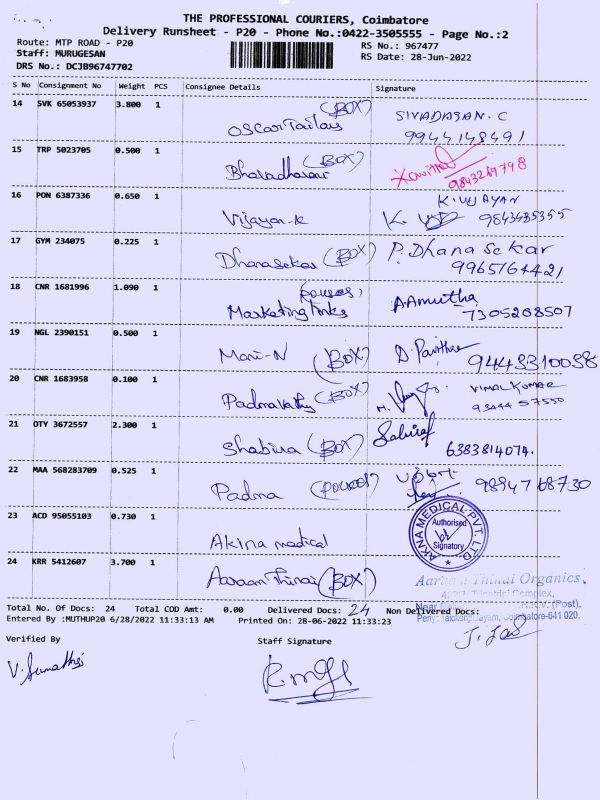 THE PROFESSIONAL COURIERS, Coimbatore
Delivery Runsheet - P20 - Phone No.:0422-3505555 - Page No.:2
Route: MTP ROAD - P20 RS No.: 967477
Staff: MURUGESAN RS Date: 28-Jun-2022
DRS No.: DCJB96747702
S No Consignment No Weight PCS Consignee Details Signature
14 SVK 65053937 3.800 1 (BOX) SIVADASAN. C
Oscar Tailors 9944148491
15 TRP 5023705 0.500 1 (BOX)
Bharadharani 9843269798
16 PON 6387336 0.650 1 K. VIJAYAN
Vijayan-K 9843435355
17 GYM 234075 0.225 1
Dhanasekar (BOX) P. Dhana Sekar
9965164421
18 CNR 1681996 1.090 1
Marketing A Amutha
7305208507
19 NGL 2390151 0.500 1
Mani-N (BOX) 9443310098
20 CNR 1683958 0.100 1 VIMAL KUMAR
Padmavathy (BOX) 93444 57550
21 OTY 3672557 2.300 1
Shabira (BOX) 6383814074.
22 MAA 568283709 0.525 1
Padma 9894768730
23 ACD 95055103 0.730 1
Akina medical
AKNA MEDICAL PVT. LTD.
Authorised
Signatory
24 KRR 5412607 3.700 1
Aaraan Thinai (BOX) Organics,
Complex,
(Post),
Coimbatore-641 020.
Total No. Of Docs: 24 Total COD Amt: 0.00 Delivered Docs: 24 Non Delivered Docs:
Entered By :MUTHUP20 6/28/2022 11:33:13 AM Printed On: 28-06-2022 11:33:23
Verified By Staff Signature
V. Sumathi